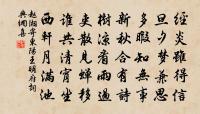 經炎雖得信
旦夕夢兼思
多暇知無事
新秋合有詩
樹涼看雨過
吏散見蟬移
誰共清宵坐
西軒月滿池
趙湘寄東陽王明府詞